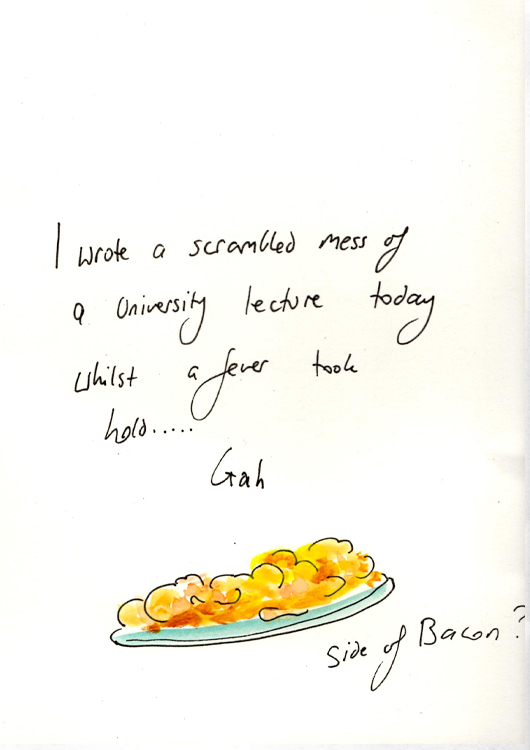 I wrote a scrambled mess of
a University lecture today
whilst a fever took
hold.....
Gah
Side of Bacon?